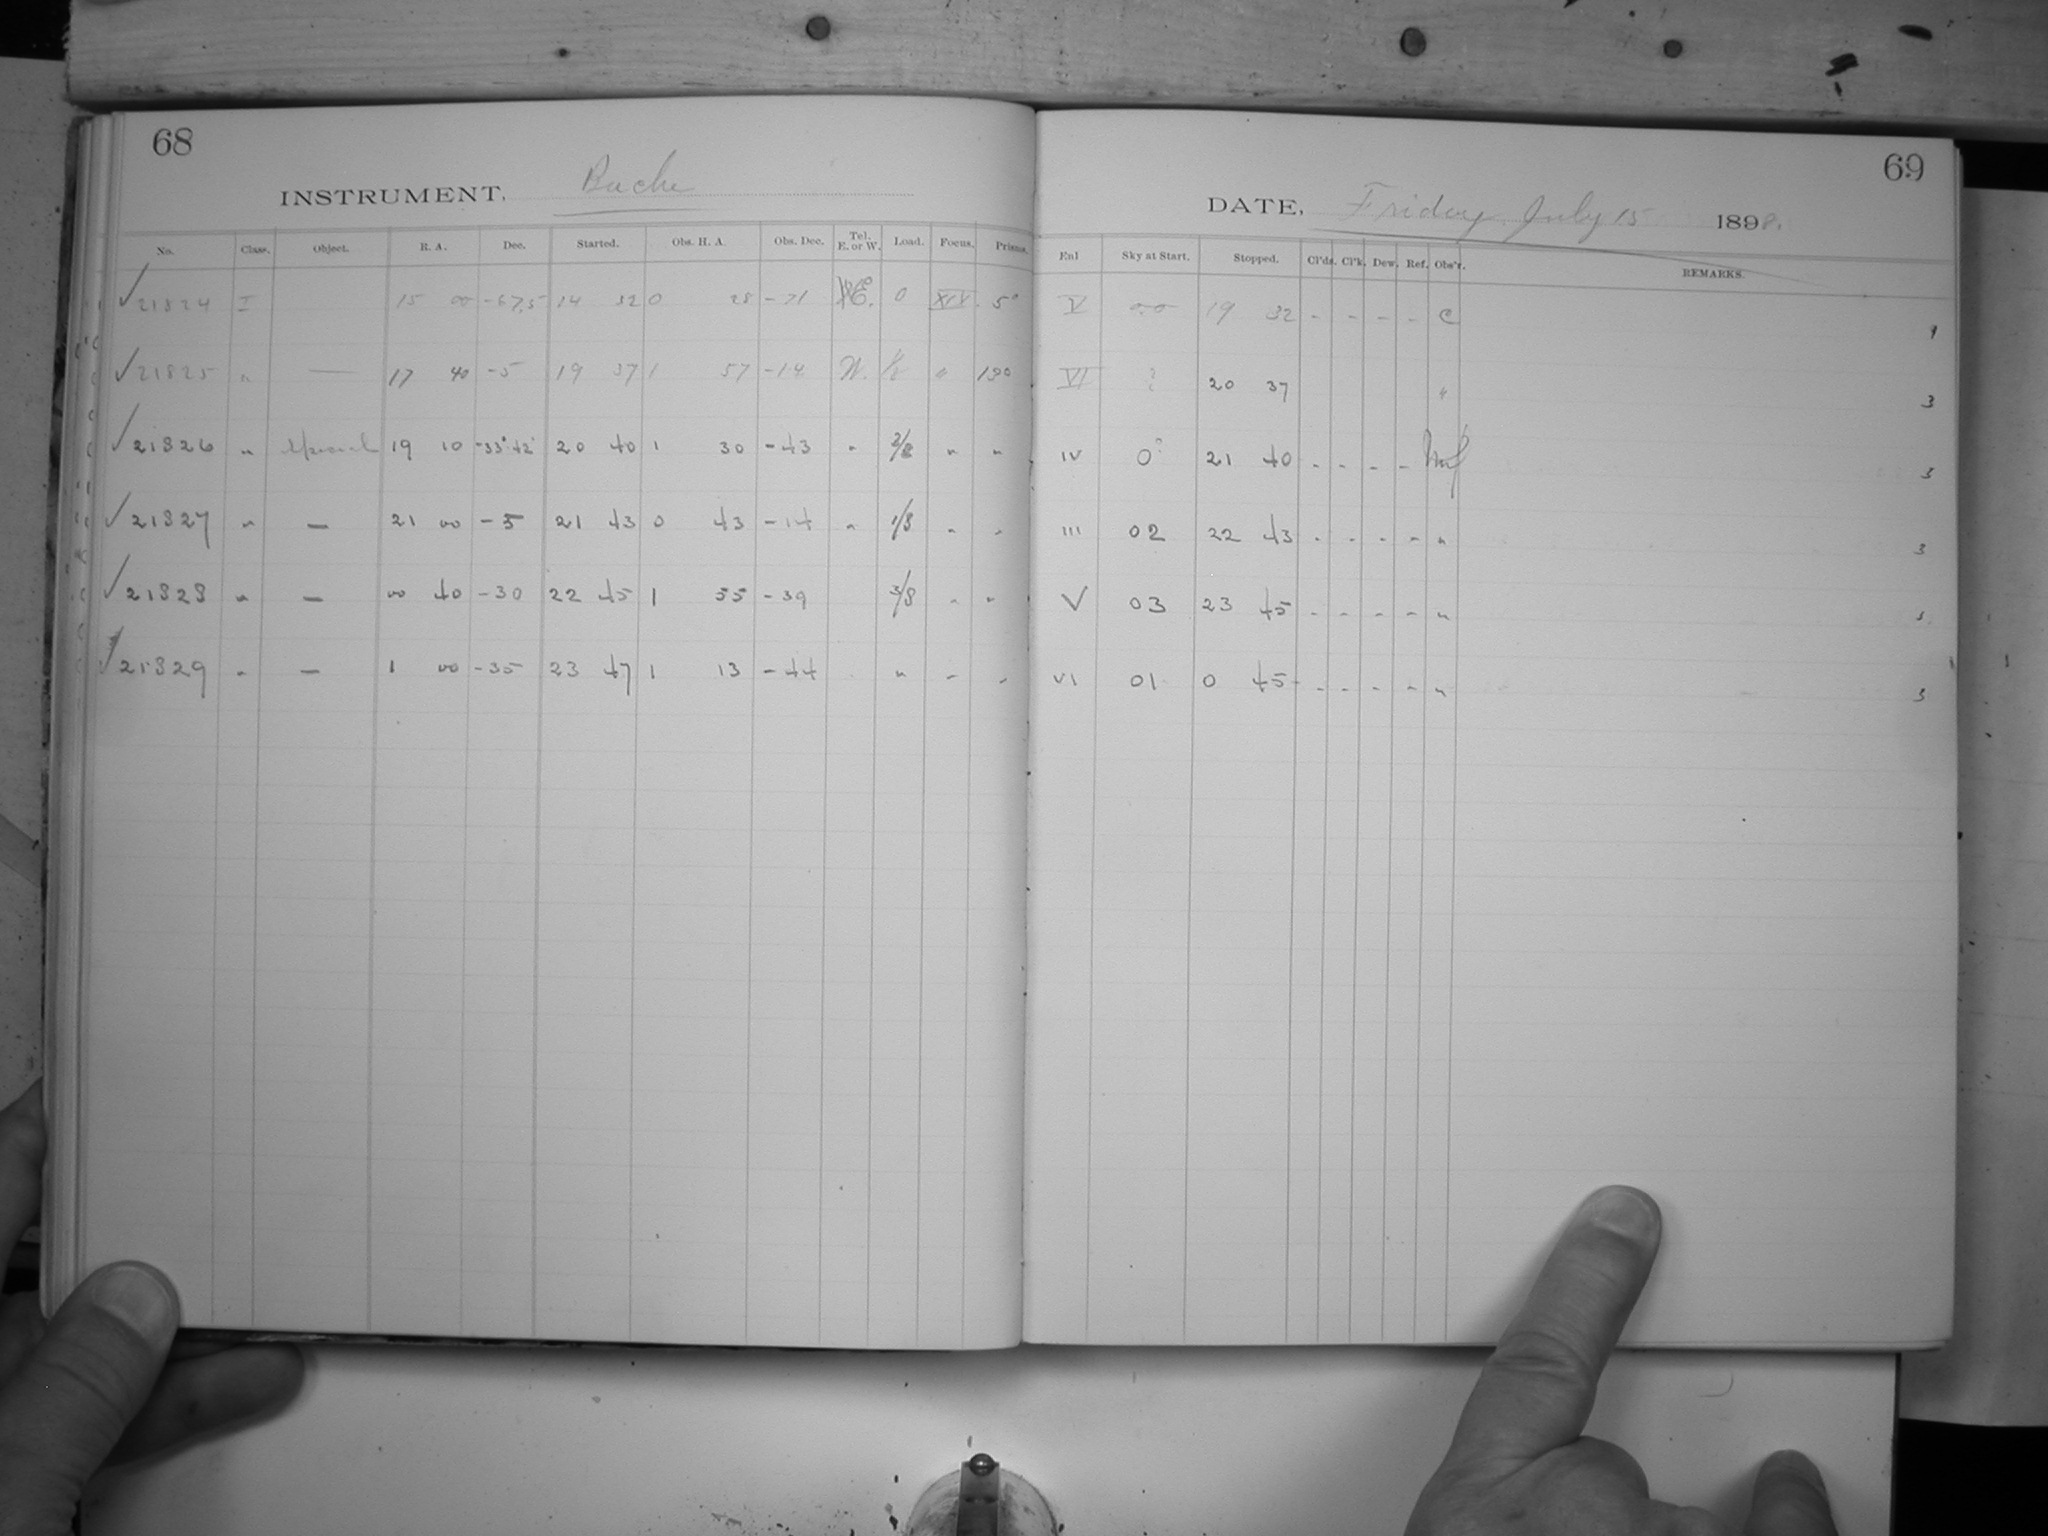 68
INSTRUMENT, Bache
No. Class. Object. R. A. Dec. Started. Obs. H. A. Obs. Dec. Tel. E. or W. Load. Focus. Prisms.
✓21824 I 15 00 -67,5 14 32 0 28 -71 E. 0 XIX 5°
✓21825 " — 17 40 -5 19 37 1 57 -14 W. " 130
✓21826 " special 19 10 -33°42' 20 40 1 30 -43 " 2/8 " "
✓21827 " — 21 00 -5 21 43 0 43 -14 " 1/8 " "
✓21828 " — 00 40 -30 22 45 1 55 -39 3/8 " "
✓21829 " — 1 00 -35 23 47 1 13 -44 " " "
69
DATE, Friday July 15 1898.
Enl Sky at Start. Stopped. Cl'ds. Cl'k. Dew. Ref. Obs'r. REMARKS.
V 19 32 - - - - C 1
VI ? 20 37 " 3
IV 0 21 40 - - - - 3
III 02 22 43 - - - - " 3
V 03 23 45 - - - - " 3
VI 01 0 45 - - - - " 3